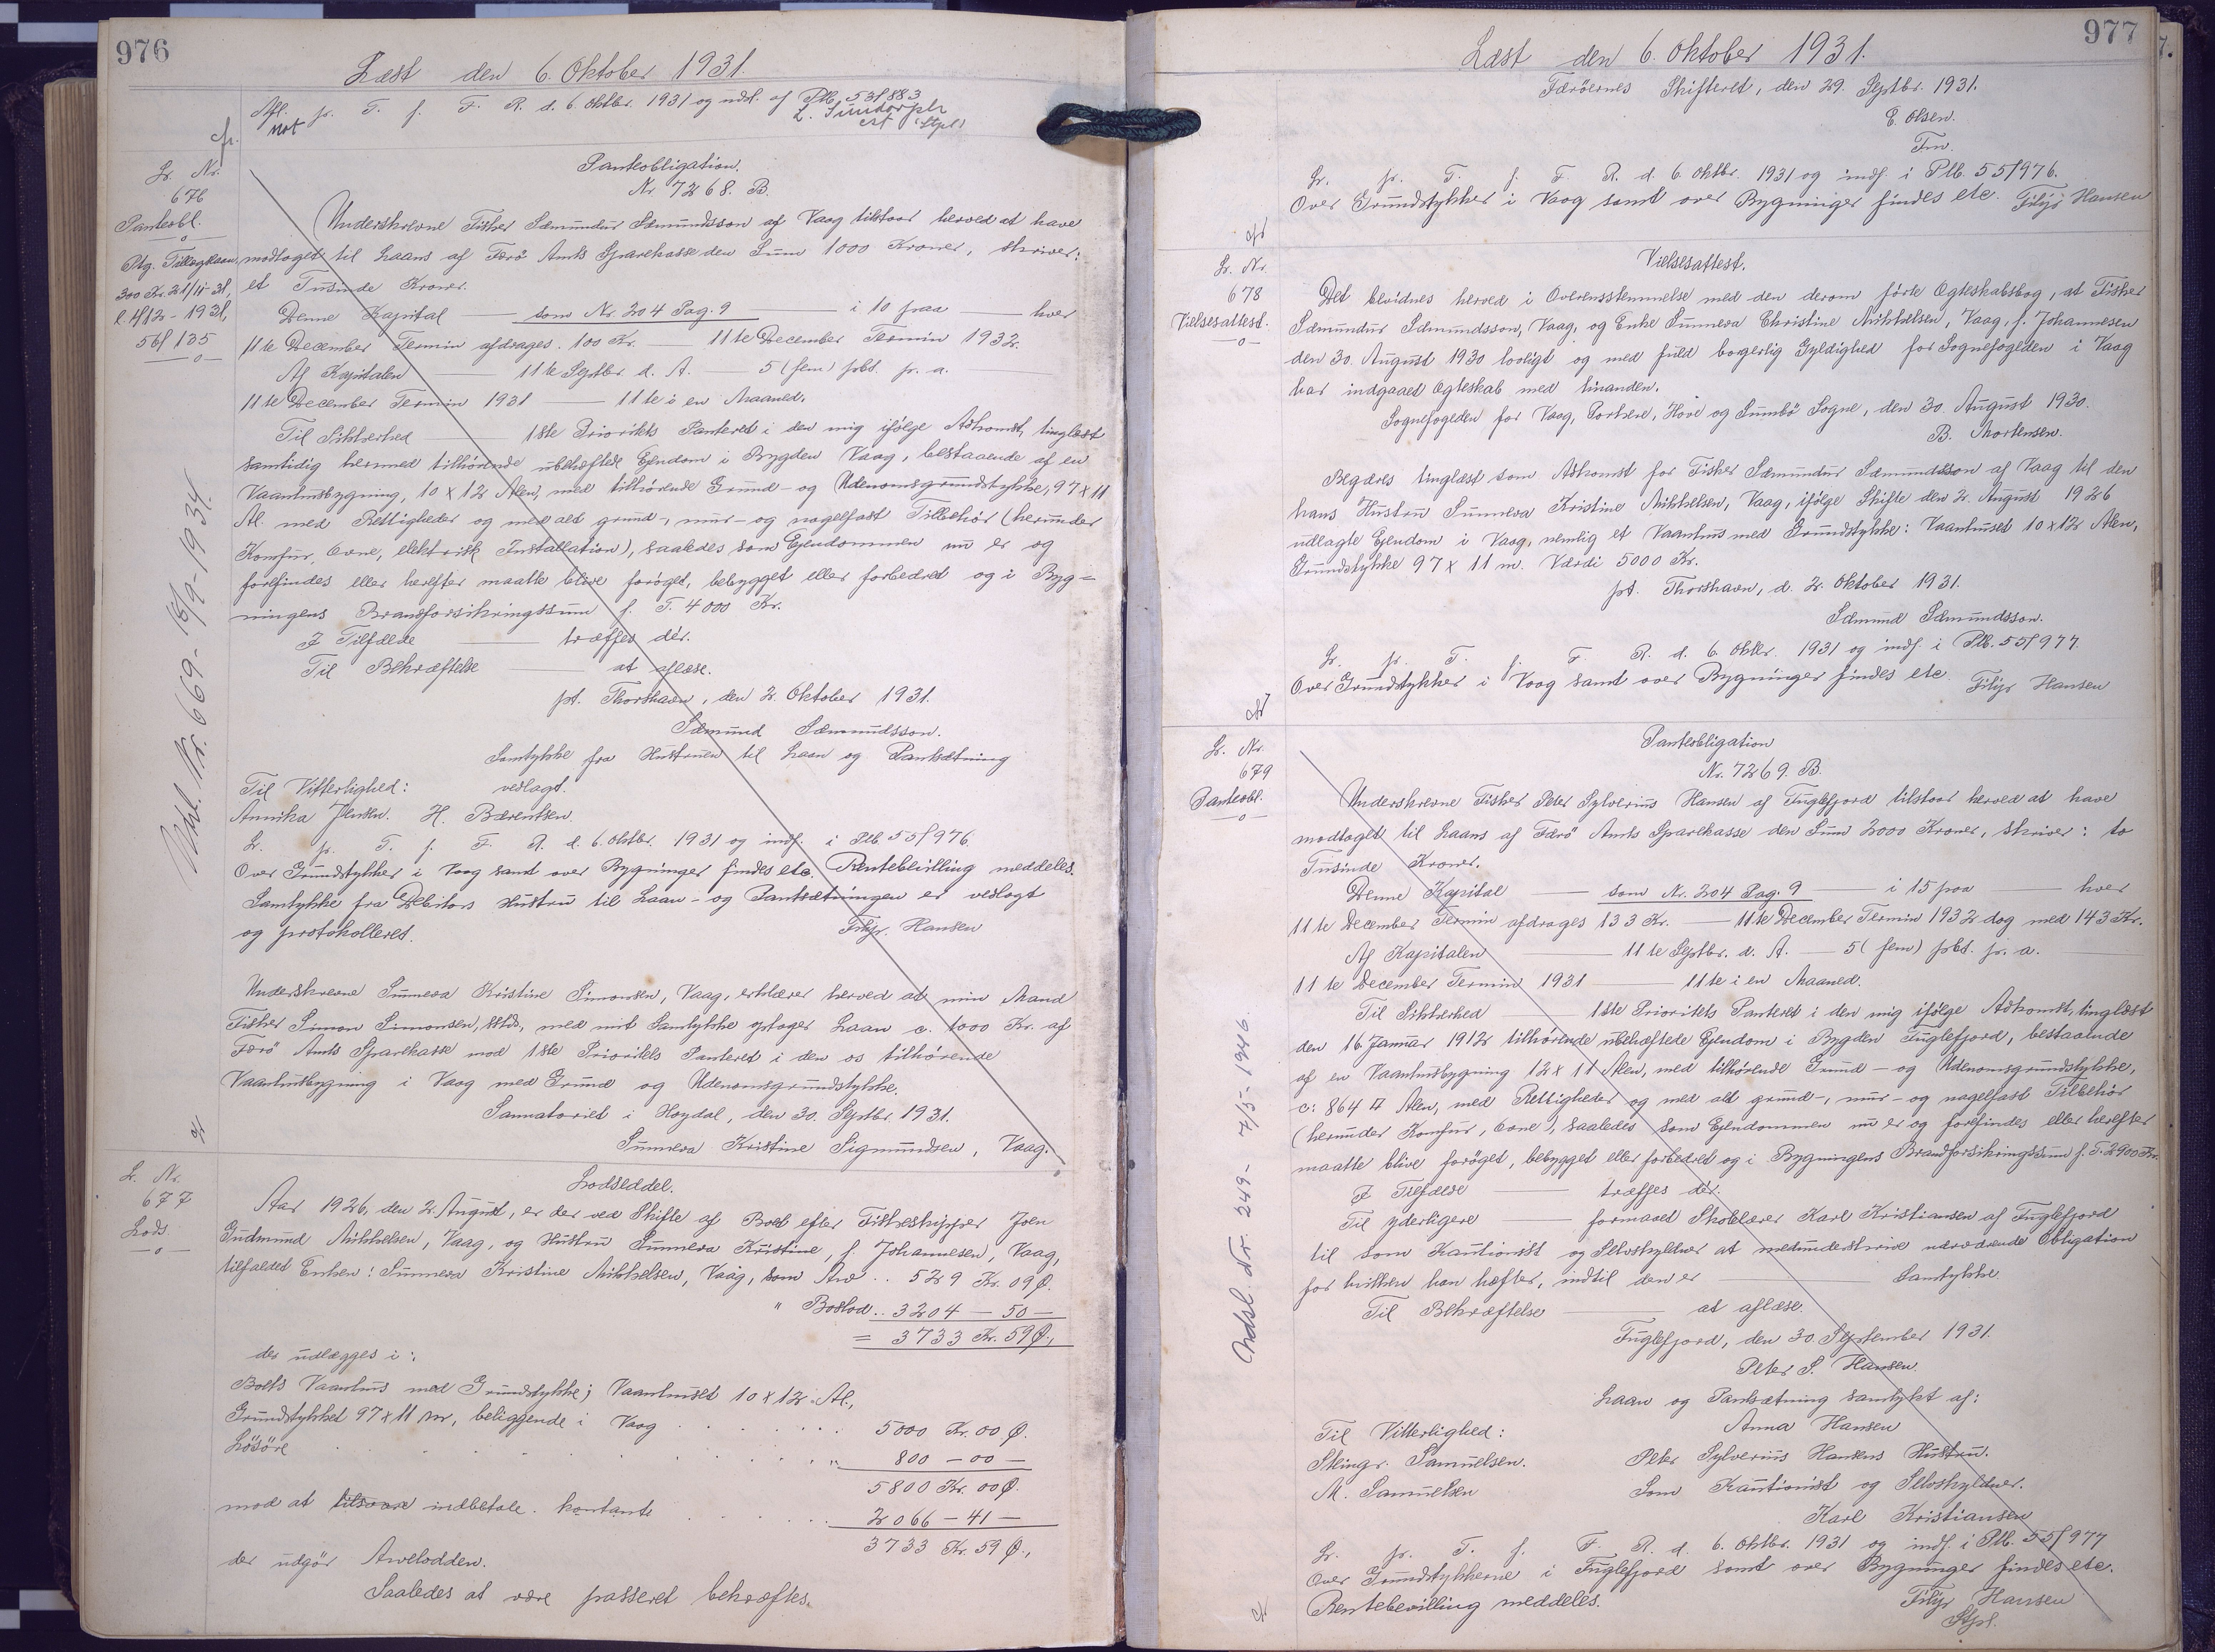 976
Læst den 6. Oktober 1931.
Afl. pr. T. f. F. R. d. 6. Oktbr. 1931 og udsl. af Ptb. 53f883
not
cfr.
Lr. Nr.
676
Panteobl.
Ptg. Tillægslaan
300 Kr. 21/11-31,
l. 4/12-1931,
56f135
Udsl. Nr. 669 - 18/9-1934.
Panteobligation.
Nr 7268. B.
Underskrevne Fisker Sæmundur Sæmundsson af Vaag tilstaar herved at have
modtaget til Laans af Færö Amts Sparekasse den Sum 1000 Kroner, skriver:
et Tusinde Kroner.
Denne Kapital — som Nr. 204 Pag. 9 — i 10 paa — hver
11te December Termin afdrages 100 Kr. — 11te December Termin 1932.
Af Kapitalen — 11te Septbr. d. A. — 5 (fem) pCt. p. a.
11te December Termin 1931 — 11te i en Maaned.
Til Sikkerhed — 1ste Prioritets Panteret i den mig ifølge Adkomst, tinglæst
samtidig hermed tilhørende ubehæftede Ejendom i Bygden Vaag, bestaaende af en
Vaanhusbygning, 10 x 12 Alen, med tilhørende Grund- og Udenomsgrundstykke, 97 x 11
Al. med Rettigheder og med alt grund-, mur- og nagelfast Tilbehör (herunder
Komfur, Ovne, elektrisk Installation), saaledes som Ejendommen nu er og
forefindes eller herefter maatte blive forøget, bebygget eller forbedret og i Byg=
ningens Brandforsikringssum f. T. 4000 Kr.
I Tilfælde — træffes dér.
Til Bekræftelse — at aflæse.
pt. Thorshavn, den 2. Oktober 1931.
Sæmund Sæmundsson.
Samtykke fra Hustruen til Laan og Pantsætning
Til Vitterlighed: vedlagt.
Annika Jensen. H. Bærentsen.
L. pr. T. f. F. R. d. 6. Oktbr. 1931 og indf. i Ptb. 55f976
Over Grundstykker i Vaag samt over Bygninger findes etc. Rentebevilling meddeles.
Samtykke fra Debitors Hustru til Laan- og Pantsætningen er vedlagt
og protokolleret. Filip Hansen
Underskrevne Sunneva Kristine Simonsen, Vaag, erklærer herved at min Mand
Fisker Simon Simonsen, sstds, med mit Samtykke optager Laan c. 1000 Kr. af
Færö Amts Sparekasse mod 1ste Prioritets Panteret i den os tilhørende
Vaanhusbygning i Vaag med Grund og Udenomsgrundstykke.
Sannatoriet i Hoydal, den 30. Septbr. 1931.
Sunneva Kristine Sigmundsen, Vaag.
L. Nr.
677
Lods.
Lodseddel.
Aar 1926, den 2. August, er der ved Skifte af Boet efter Fiskeskipper Joen
Gudmund Mikkelsen, Vaag, og Hustru Sunneva Kristine, f. Johannesen, Vaag,
tilfaldet Enken: Sunneva Kristine Mikkelsen, Vaag, som Arv .. 529 Kr. 09 Ø.
" Boslod .. 3204 — 50 —
= 3733 Kr. 59 Ø.,
der udlægges i:
Boets Vaanhus med Grundstykke; Vaanhuset 10 x 12 Al.,
Grundstykket 97 x 11 m, beliggende i Vaag . . . . . . 5000 Kr. 00 Ø.
Løsøre . . . . . . " 800 — 00 —
5800 Kr. 00 Ø.
mod at tilsvare indbetale kontant . . . . . . 2066 — 41 —
3733 Kr. 59 Ø.,
der udgør Arvelodden.
Saaledes at være passeret bekræftes.
977
Læst den 6. Oktober 1931.
Færöernes Skifteret, den 29. Septbr. 1931.
E. Olsen.
Fm.
Lr. pr. T. f. F. R. d. 6. Oktbr. 1931 og indf. i Ptb. 55f976.
Over Grundstykker i Vaag samt over Bygninger findes etc. Filip Hansen
Lr. Nr.
678
Vielsesattest.
Vielsesattest.
Det bevidnes herved i Overensstemmelse med den derom førte Ægteskabsbog, at Fisker
Sæmundur Sæmundsson, Vaag, og Enke Sunneva Christine Mikkelsen, Vaag, f. Johannesen
den 30. August 1930 lovligt og med fuld borgerlig Gyldighed for Sognefogden i Vaag
har indgaaet Ægteskab med hinanden.
Sognefogden for Vaag, Porkere, Hove og Sumbö Sogne, den 30. August 1930.
B. Mortensen.
Begæres tinglæst som Adkomst for Fisker Sæmundur Sæmundsson af Vaag til den
hans Hustru Sunneva Kristine Mikkelsen, Vaag, ifølge Skifte den 2. August 1926
udlagte Ejendom i Vaag, nemlig et Vaanhus med Grundstykke: Vaanhuset 10 x 12 Alen,
Grundstykke 97 x 11 m. Værdi 5000 Kr.
pt. Thorshavn, d. 2. Oktober 1931.
Sæmund Sæmundsson.
Lr. pr. T. f. F. R. d. 6. Oktbr. 1931 og indf. i Ptb. 55f977.
Over Grundstykker i Vaag samt over Bygninger findes etc. Filip Hansen
Lr. Nr.
679
Panteobl.
Udsl. Nr. 249 - 7/5-1946.
Panteobligation
Nr. 7269. B.
Underskrevne Fisker Peter Sylverius Hansen af Fuglefjord tilstaar herved at have
modtaget til Laans af Færö Amts Sparekasse den Sum 2000 Kroner, skriver: to
Tusinde Kroner.
Denne Kapital — som Nr. 204 Pag. 9 — i 15 paa — hver
11te December Termin afdrages 133 Kr. — 11te December Termin 1932 dog med 143 Kr.
Af Kapitalen — 11te Septbr. d. A. — 5 (fem) pCt. p. a.
11te December Termin 1931 — 11te i en Maaned.
Til Sikkerhed — 1ste Prioritets Panteret i den mig ifølge Adkomst, tinglæst
den 16. Januar 1912 tilhørende ubehæftede Ejendom i Bygden Fuglefjord, bestaaende
af en Vaanhusbygning 12 x 11 Alen, med tilhørende Grund- og Udenomsgrundstykke,
c: 864 □ Alen, med Rettigheder og med alt grund-, mur- og nagelfast Tilbehör
(herunder Komfur, Ovne), saaledes som Ejendommen nu er og forefindes eller herefter
maatte blive forøget, bebygget eller forbedret og i Bygningens Brandforsikringssum f. T. 2900 Kr.
I Tilfælde — træffes dér.
Til yderligere — formaaet Skolelærer Karl Kristiansen af Fuglefjord
til som Kautionist og Selvskyldner at medunderskrive nærværende Obligation
for hvilken han hæfter, indtil den er — Samtykke.
Til Bekræftelse — at aflæse.
Fuglefjord, den 30. September 1931.
Peter S. Hansen.
Laan og Pantsætning samtykt af:
Til Vitterlighed: Anna Hansen
Steingr. Samuelsen. Peter Sylverius Hansens Hustru.
M. Samuelsen Som Kautionist og Selvskyldner.
Karl Kristiansen
Lr. pr. T. f. F. R. d. 6. Oktbr. 1931 og indf. i Ptb. 55f977
Over Grundstykkerne i Fuglefjord samt over Bygninger findes etc.
Rentebevilling meddeles. Filip Hansen
Stpl.